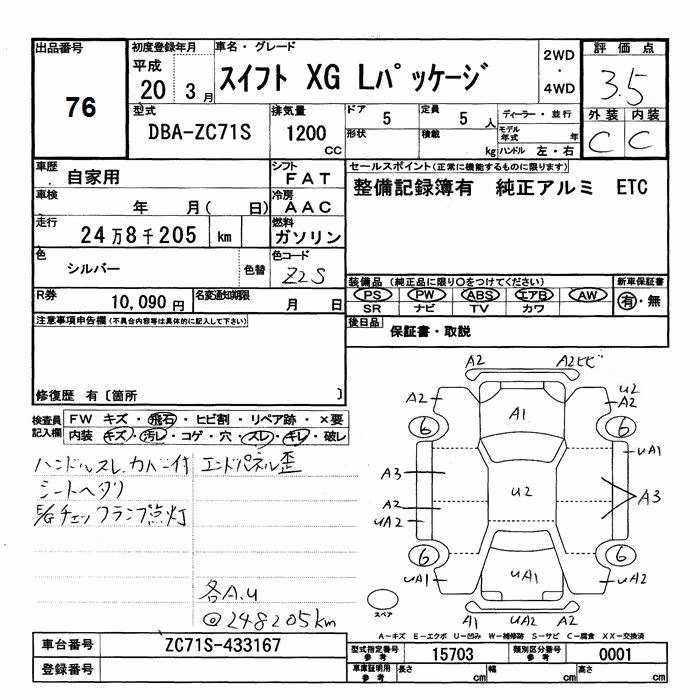 出品番号 初度登録年月 車名・グレード 2WD・4WD 評価点
76 平成 20 3月 スイフト XG Lパッケージ 3.5
型式 排気量 ドア 定員 ディーラー・並行 外装 内装
DBA-ZC71S 1200 CC 5 5 人 C C
形状 積載 kg モデル年式 年
ハンドル 左・右
車歴 自家用 シフト FAT セールスポイント(正常に機能するものに限ります)
車検 年 月( 日) 冷房 AAC 整備記録簿有 純正アルミ ETC
走行 24万8千205 km 燃料 ガソリン
色 シルバー 色替 色コード Z2S
装備品(純正品に限り○をつけてください) 新車保証書
R券 10,090円 名変通知期限 月 日 PS PW ABS エアB AW 有・無
SR ナビ TV カワ
注意事項申告欄(不具合内容等は具体的に記入して下さい) 後日品 保証書・取説
修復歴 有〔箇所 〕
検査員記入欄 FW キズ・飛石・ヒビ割・リペア跡・×要
内装 キズ・汚レ・コゲ・穴・スレ・キレ・破レ
ハンドルスレ.カバー付 エンドパネル歪
シートヘタリ
E/Gチェックランプ点灯
各A.U
@248205km
A2 A2ヒビ
A2 A1 U2 A2
6 6
UA1
A3 U2 A3
A2
UA2
6 6
UA1 UA1 A2
スペア
A1 UA2 A2
A-キズ E-エクボ U-凹み W-補修跡 S-サビ C-腐食 XX-交換済
車台番号 ZC71S-433167 型式指定番号 参考 15703 類別区分番号 参考 0001
登録番号 車庫証明用 参考 長さ cm 幅 cm 高さ cm